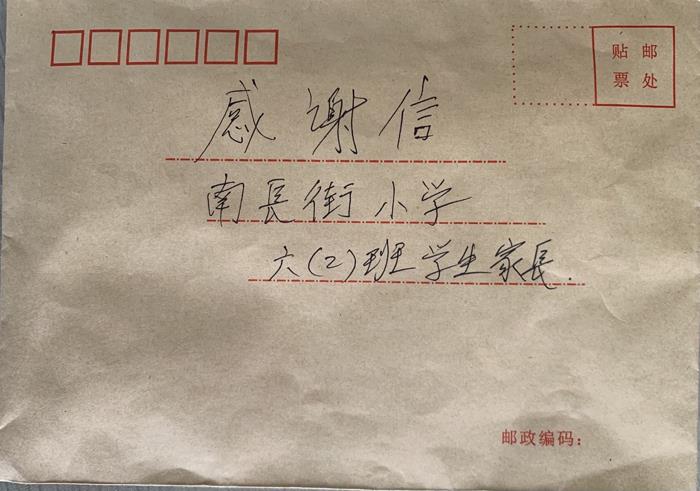 贴邮
票处
感谢信
南長街小学
六(2)班学生家長.
邮政编码: